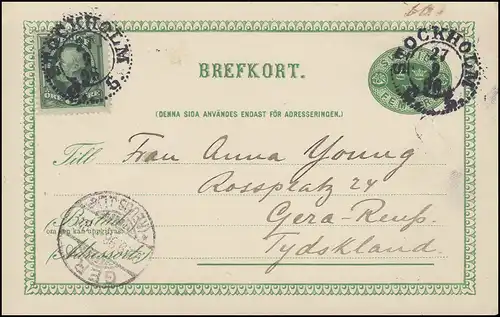 STOCKHOLM
STOCKHOLM
27
5
BREFKORT.
FEM
(DENNA SIDA ANVÄNDES ENDAST FÖR ADRESSERINGEN.)
Till Frau Anna Young
Rossplatz 24
Gera-Reuß.
Tydskland
GERA